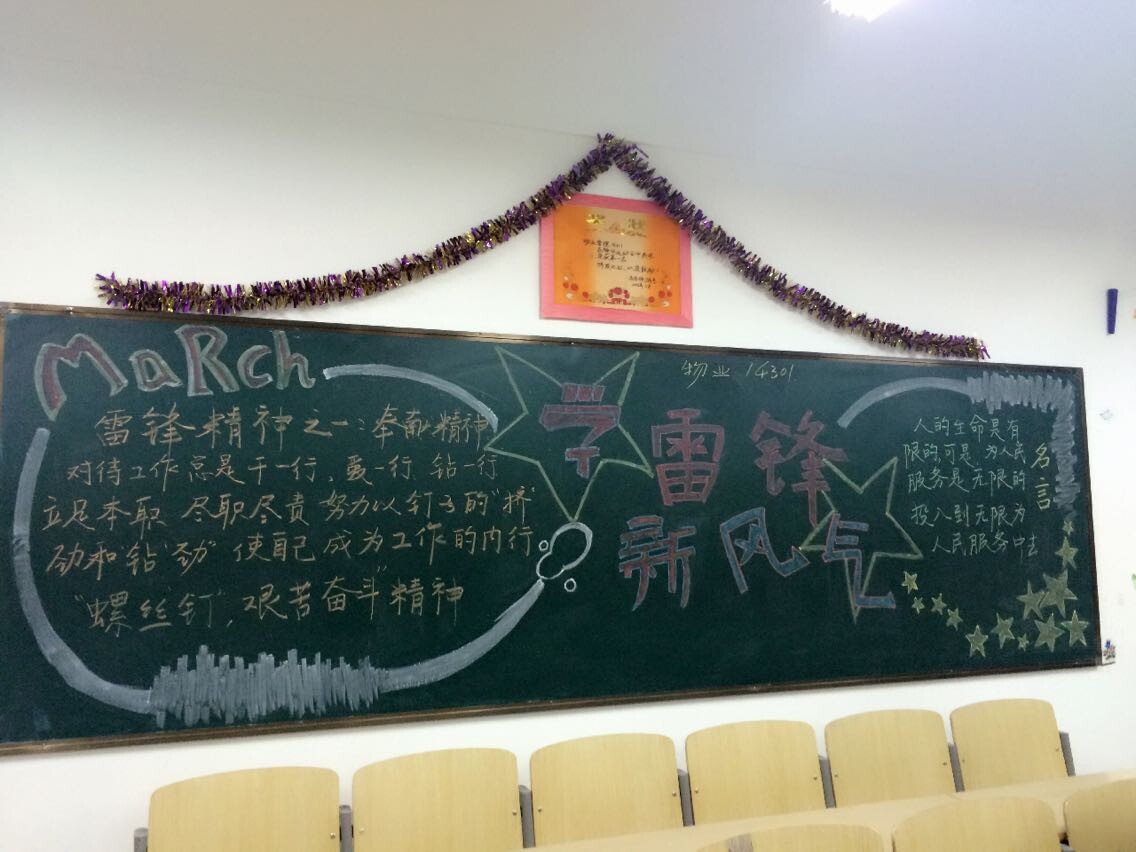 MaRch
雷锋精神之一:奉献精神
对待工作总是干一行、爱一行、钻一行
立足本职 尽职尽责 努力以钉子的"挤"
劲和"钻"劲 使自己成为工作的内行
"螺丝钉",艰苦奋斗"精神
物业 14301
学雷锋
新风气
人的生命是有
限的可是,为人民
服务是无限的
投入到无限为
人民服务中去
名言